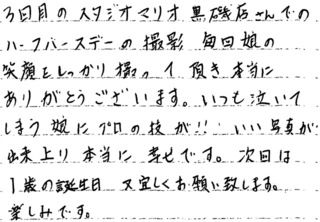 3回目のスタジオマリオ黒磯店さんでの
ハーフバースデーの撮影 毎回娘の
笑顔をしっかり撮って頂き本当に
ありがとうございます。いつも泣いて
しまう娘にプロの技が!! いい写真が
出来上り本当に幸せです。次回は
1歳の誕生日 又宜しくお願い致します。
楽しみです。